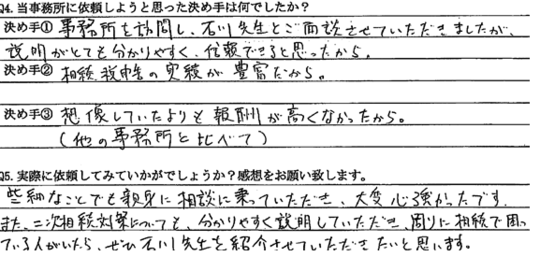 Q4. 当事務所に依頼しようと思った決め手は何でしたか？
決め手① 事務所を訪問し、石川先生とご面談させていただきましたが、
説明がとても分かりやすく、信頼できると思ったから。
決め手② 相続税申告の実績が豊富だから。
決め手③ 想像していたよりも報酬が高くなかったから。
(他の事務所と比べて)
Q5. 実際に依頼してみていかがでしょうか？感想をお願い致します。
些細なことでも親身に相談に乗っていただき、大変心強かったです
また、二次相続対策についても、分かりやすく説明していただき、周りに相続で困っ
ている人がいたら、ぜひ石川先生を紹介させていただきたいと思います。